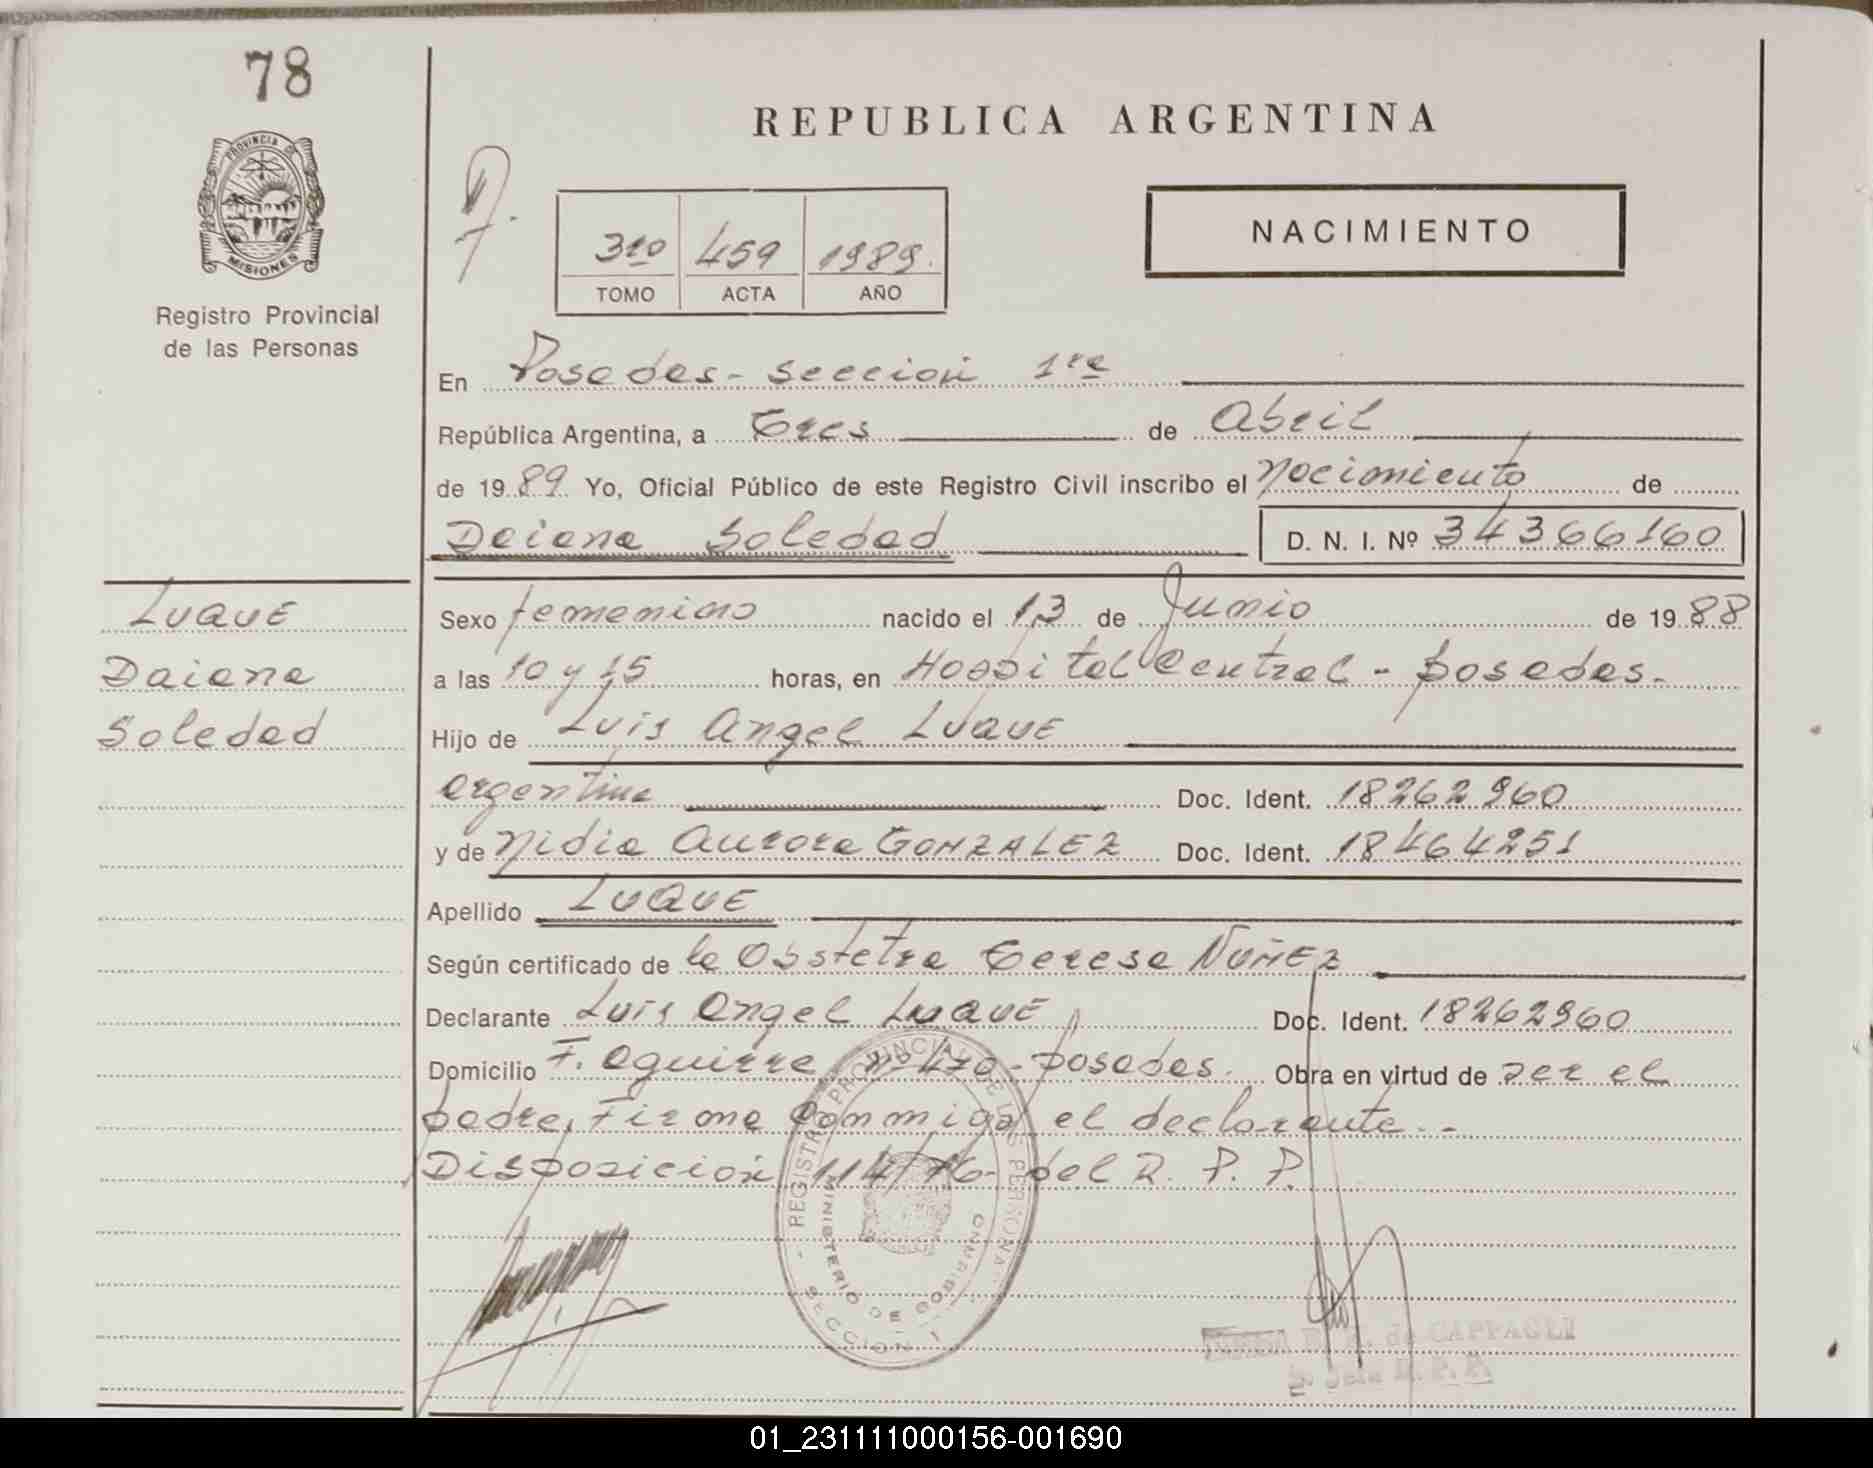 78
REPUBLICA ARGENTINA
PROVINCIA DE
MISIONES
Registro Provincial
de las Personas
3ro 459 1989.
TOMO ACTA AÑO
NACIMIENTO
En Posadas - seccion 1ra
República Argentina, a tres de abril
de 1989 Yo, Oficial Público de este Registro Civil inscribo el nacimiento de
Daiana Soledad D. N. I. Nº 34366160
LUQUE
Daiana
Soledad
Sexo femenino nacido el 13 de Junio de 1988
a las 10 y 15 horas, en Hospital Central - posadas.
Hijo de Luis Angel LUQUE
argentina Doc. Ident. 18262960
y de Nidia Aurora GONZALEZ Doc. Ident. 18464251
Apellido LUQUE
Según certificado de la Obstetra Teresa NUÑEZ
Declarante Luis Angel LUQUE Doc. Ident. 18262960
Domicilio F. Aguirre nº 470 - posadas. Obra en virtud de ser el
padre, Firma conmigo el declarante. -
Disposicion 114/76 - del R. P. P.
REGISTRO PROVINCIAL DE LAS PERSONAS
MINISTERIO DE GOBIERNO
SECCION 1
de CAPPAGLI
01_231111000156-001690